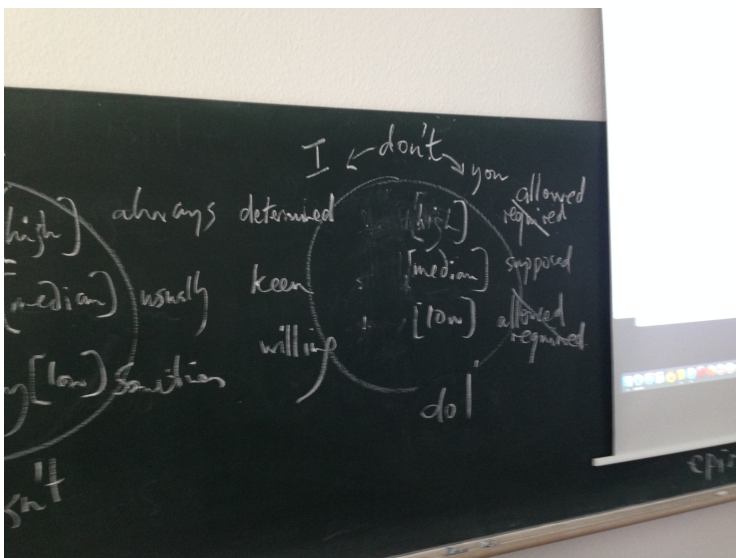 I don't you
always determined [high] allowed required
[median] usually keen [median] supposed
[low] willing [low] allowed required
do!